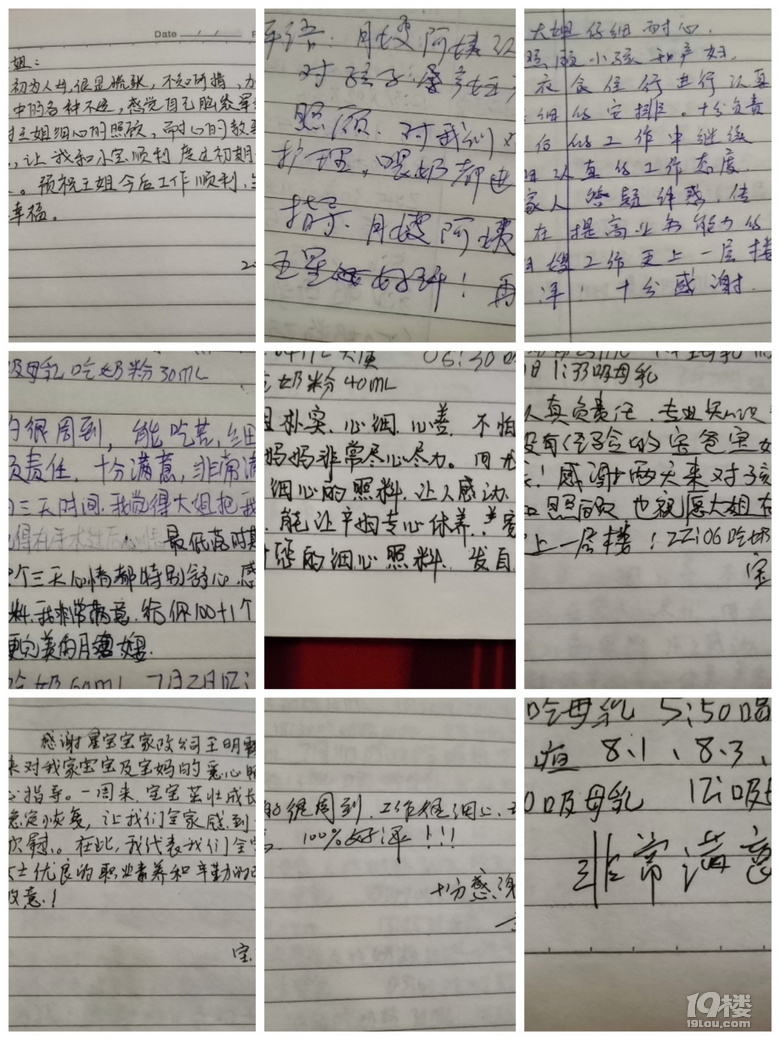 Date
姐:
初为人母,很是慌张,不知所措,
中的各种不适,感觉自己脑袋
王姐细心的照顾,耐心的教
让我和小宝顺利度过初期
。预祝王姐今后工作顺利,
幸福。
评语:月嫂阿姨
对孩子
照顾.对我们
护理,喂奶都
指导.月嫂阿姨
五星 好评!再
大姐仔细耐心.
照顾小孩和产妇.
衣食住行进行认真
细的安排。十分负责
后的工作中继续
以认真的工作态度.
家人答疑解惑.
在提高业务能力的
月嫂工作更上一层楼
十分感谢.
吸母乳吃奶粉30mL
的很周到,能吃苦,细
负责任,十分满意,非常满
三天时间.我觉得大姐把我
最低落时期
个三天心情都特别舒心.感
料.我非常满意.给你100+1个
更完美的月嫂.
7月2日
06:30
吃奶粉40mL
朴实.心细.心善.不怕
妈妈非常尽心尽力。
细心的照料.让人感动
.能让产妇专心休养.
的细心照料.发自
日1:33吸母乳
认真负责任.专业知识
没有经验的宝爸宝妈
!感谢 两天来对孩
照顾 也祝愿大姐
上一层楼!22:06吃奶
宝
感谢星宝宝家政公司王明
来对我家宝宝及宝妈的悉心照
心指导。一周来,宝宝茁壮成长
稳定恢复,让我们全家感到
欣慰。在此,我代表我们全
女士优良的职业素养和辛勤的
敬意!
宝
的很周到.工作很细心.
100%好评!!!
十分感谢
吃母乳 5:50喝
疸 8.1、8.3、
吸母乳 12:吸
非常满意
19楼
19lou.com